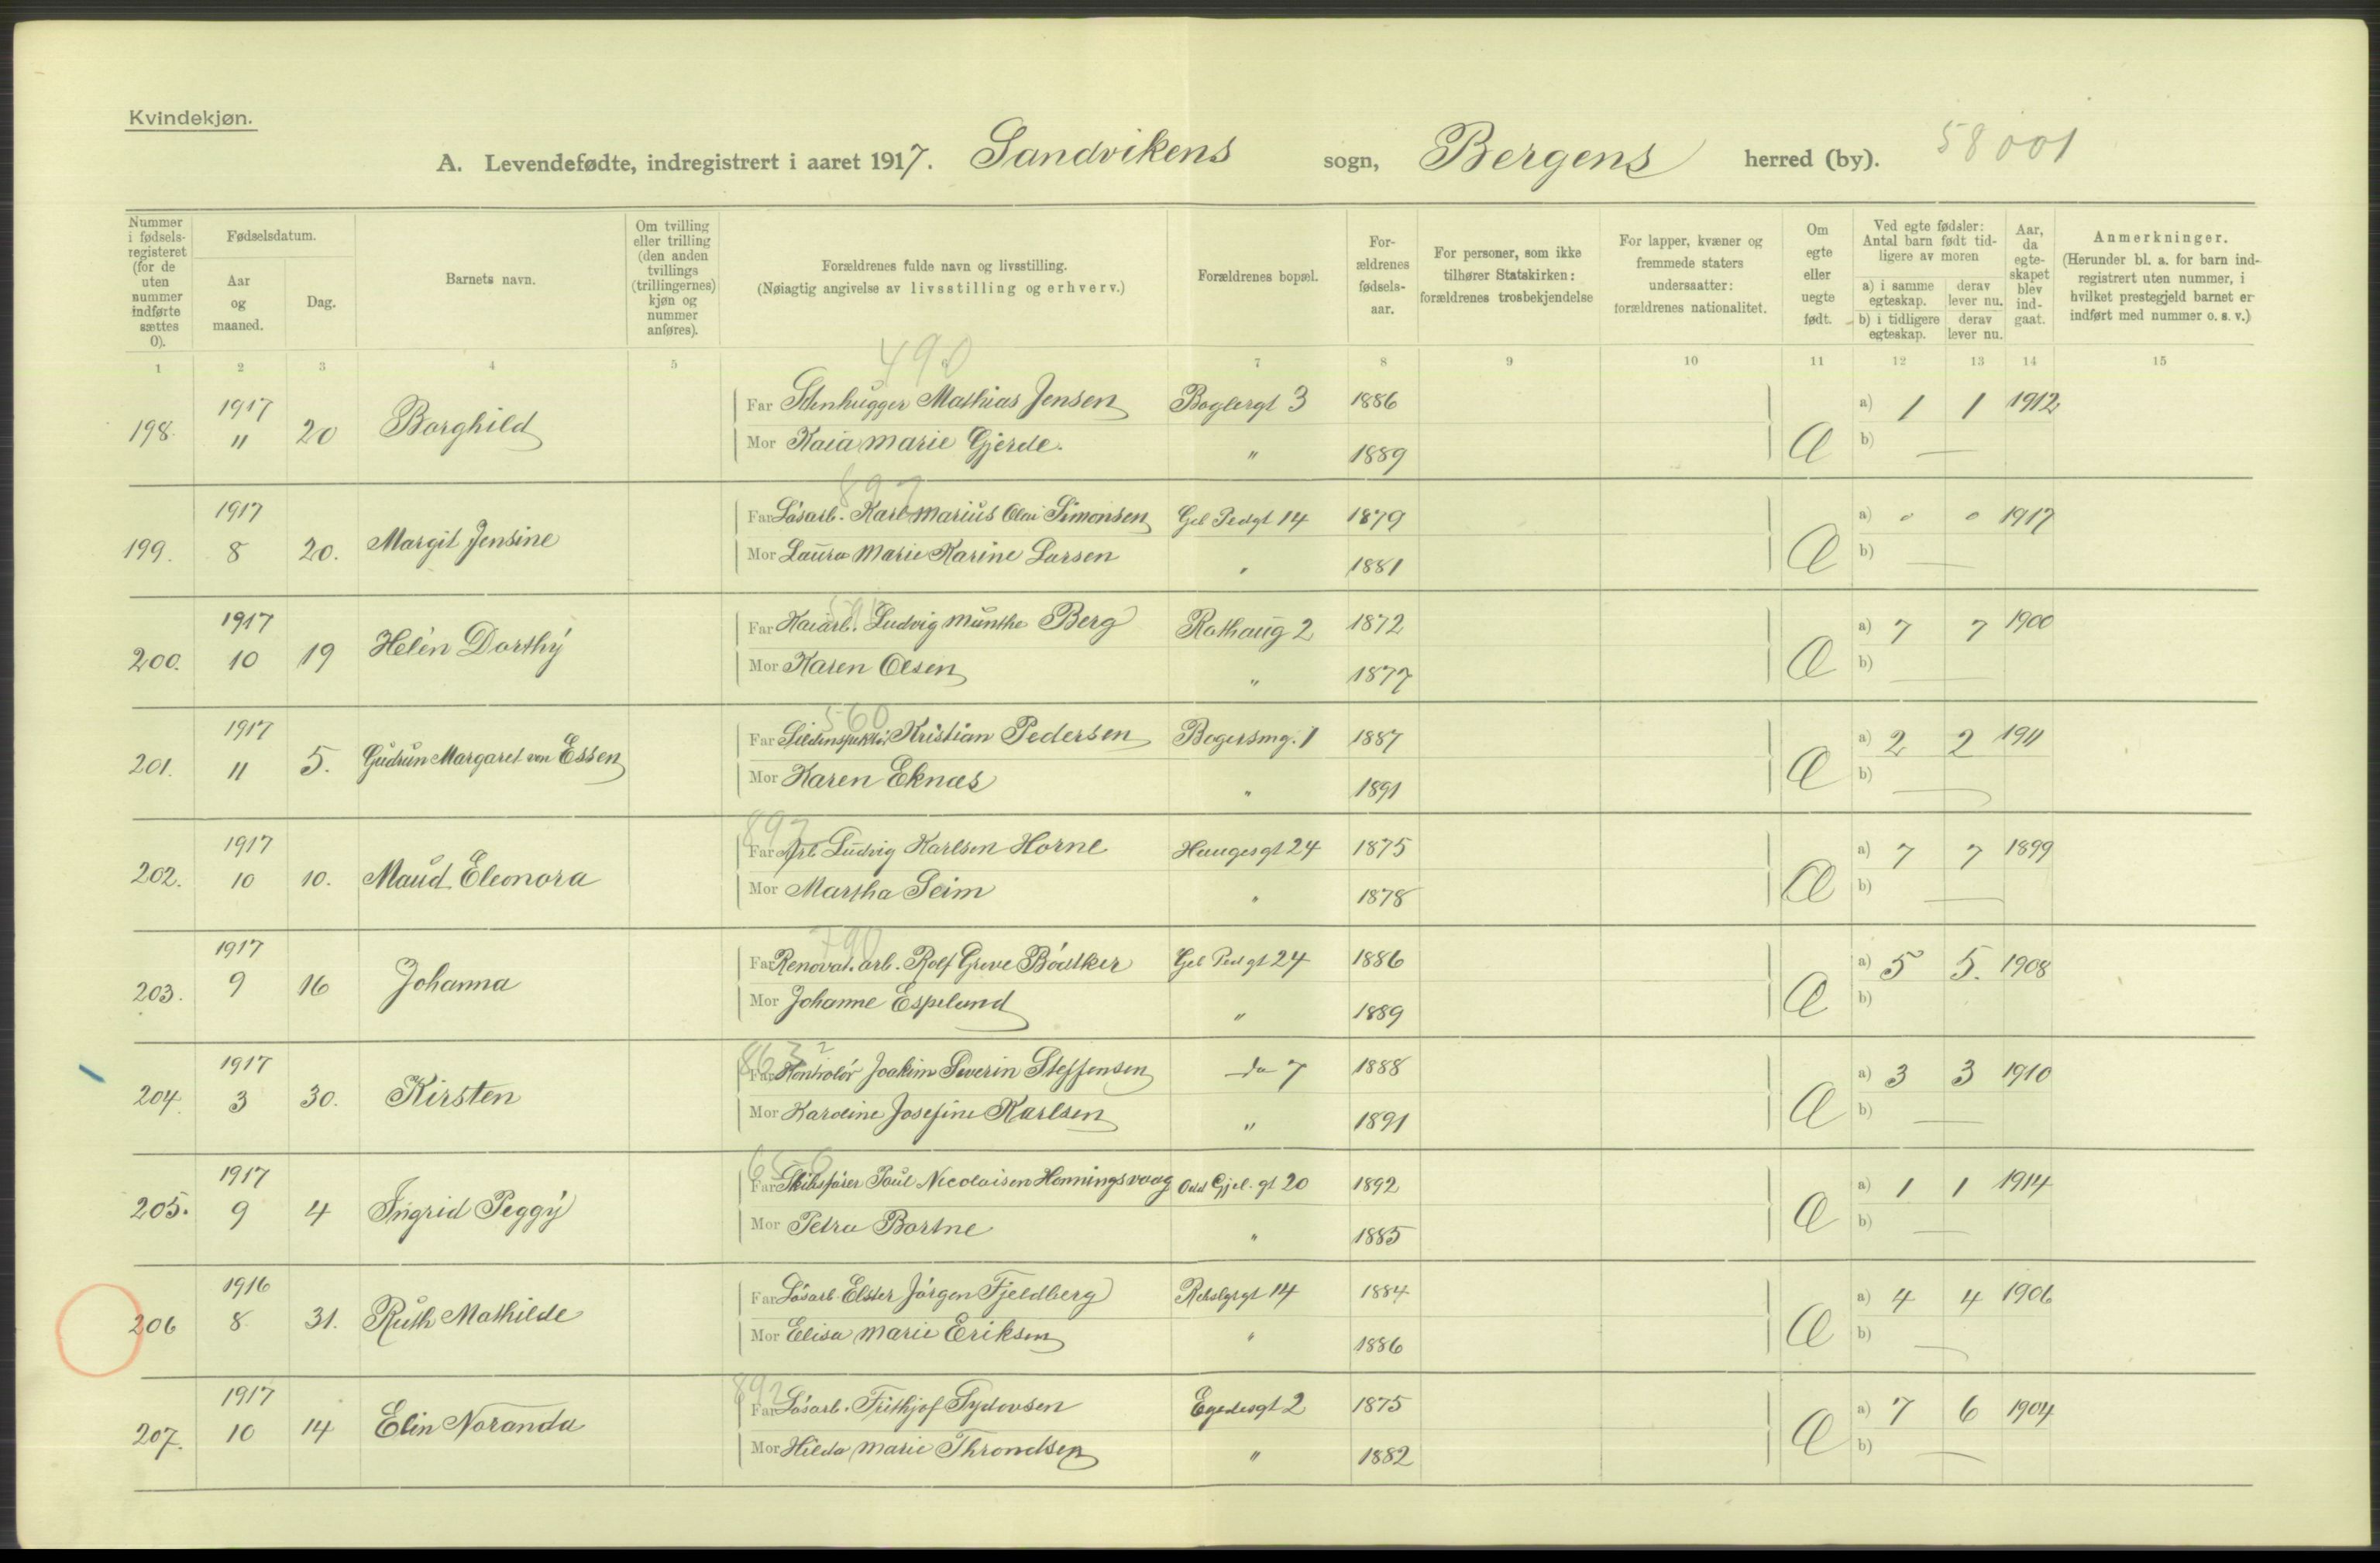 Kvindekjøn.
A. Levendefødte, indregistrert i aaret 1917. Sandvikens sogn, Bergens herred (by). 58001
Nummer i fødsels-registeret (for de uten nummer indførte sættes 0).
Fødselsdatum.
Aar og maaned.
Dag.
Barnets navn.
Om tvilling eller trilling (den anden tvillings (trillingernes) kjøn og nummer anføres).
Forældrenes fulde navn og livsstilling.
(Nøiagtig angivelse av livsstilling og erhverv.)
Forældrenes bopæl.
For-ældrenes fødsels-aar.
For personer, som ikke tilhører Statskirken: forældrenes trosbekjendelse
For lapper, kvæner og fremmede staters undersaatter: forældrenes nationalitet.
Om egte eller uegte født.
Ved egte fødsler: Antal barn født tid-ligere av moren
a) i samme egteskap. derav lever nu.
b) i tidligere egteskap. derav lever nu.
Aar, da egte-skapet blev ind-gaat.
Anmerkninger.
(Herunder bl. a. for barn ind-registrert uten nummer, i hvilket prestegjeld barnet er indført med nummer o. s. v.)
1 2 3 4 5 6 7 8 9 10 11 12 13 14 15
490
1917 Far Stenhugger Mathias Jensen Boglergt 3 1886 a) 1 1 1912
198. 11 20 Borghild Mor Kaia Marie Gjerde. " 1889 Æ b) —
897
1917 Far Løsarb. Karl Marius Olai Simonsen Gel Pedgt 14 1879 a) 0 0 1917
199. 8 20. Margit Jensine Mor Laura Marie Karine Larsen " 1881 Æ b) —
1917 Far Kaiarb. Ludvig Munthe Berg Rothaug 2 1872 a) 7 7 1900
200. 10 19 Helén Dorthy Mor Karen Olsen " 1877 Æ b) —
560
1917 Far Sildinspektør Kristian Pedersen Bogersmg. 1 1887 a) 2 2 1911
201. 11 5. Gudrun Margaret von Essen Mor Karen Eknæs " 1891 Æ b) —
897
1917 Far Arb Ludvig Karlsen Horne Haugesgt 24 1875 a) 7 7 1899
202. 10 10. Maud Eleonora Mor Martha Seim " 1878 Æ b) —
790
1917 Far Renovat. arb. Rolf Greve Bødtker Gel Ped gt 24 1886 a) 5 5. 1908
203. 9 16 Johanna Mor Johanne Espelund " 1889 Æ b)
863 2
1917 Far Kontrolør Joakim Severin Steffensen do 7 1888 a) 3 3 1910
204. 3 30. Kirsten Mor Karoline Josefine Karlsen " 1891 Æ b) —
1917 Far Skibsfører Paul Nicolaisen Henningsvaag Odd Gjel. gt 20 1892 a) 1 1 1914
205. 9 4 Ingrid Peggy Mor Petra Bortne " 1885 Æ b) —
1916 Far Løsarb. Elster Jørgen Fjeldberg Rebslgrgt 14 1884 a) 4 4 1906
206 8 31. Ruth Mathilde Mor Elisa Marie Eriksen " 1886 Æ b) —
892
1917 Far Løsarb. Frithjof Sydovsen Egedesgt 2 1875 a) 7 6 1904
207. 10 14 Elin Noranda Mor Hilda Marie Throndsen " 1882 Æ b) —